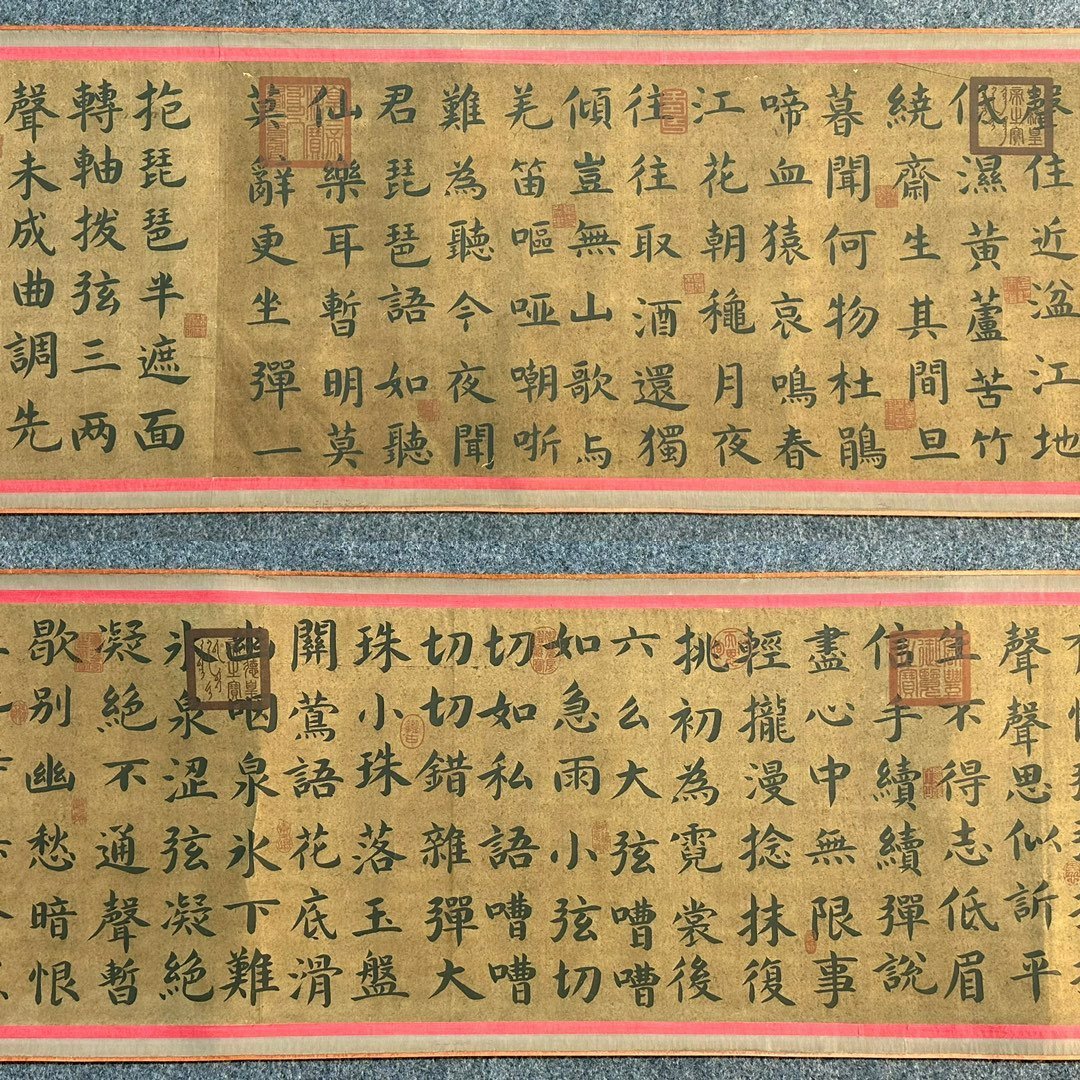 聲住近湓江地
低濕黃蘆苦竹
繞齋生其間旦
暮聞何物杜鵑
啼血猿哀鳴春
江花朝穐月夜
往往取酒還獨
傾豈無山歌与
羌笛嘔啞嘲哳
難為聽今夜聞
君琵琶語如聽
仙樂耳暫明莫
莫辭更坐彈一
抱琵琶半遮面
轉軸拨弦三两
聲未成曲調先
聲聲思似訴平
生不得志低眉
信手續續彈說
盡心中無限事
輕攏漫捻抹復
挑初為霓裳後
六么大弦嘈嘈
如急雨小弦切
切如私語嘈嘈
切切錯雜彈大
珠小珠落玉盤
關鶯語花底滑
幽咽泉氷下難
氷泉澀弦凝絕
凝絕不通聲暫
歇別幽愁暗恨